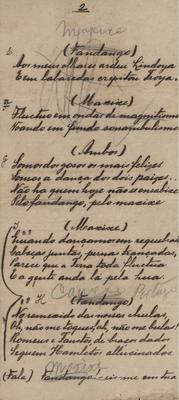 2
Maxixe
(Fandango)
Aos meus olhares ardeu Lindoya
E em labaredas crepitou Troya.
(Maxixe)
Fluctuo em ondas de magnetismo
Voando em fundo somnambulismo
(Ambos)
Somos dos gosos os mais felizes
Somos a dança dos dois paizes
Não ha quem hoje não se
Pelo fandango, pelo maxixe
(Maxixe)
Quando dançamos em requebrais
Cabeças juntas, pernas trançadas,
Parece que a Terra toda fluctua
E a gente anda lá pela Lua.
(Fandango)
Não me caia das nossas chulas,
Oh, não me toques, oh, não me bulas!
Romeus e Faustos, de braços dados
Seguem Hamletos allucinados
Maxixe
(Fala) Fandango - eis-me em tua